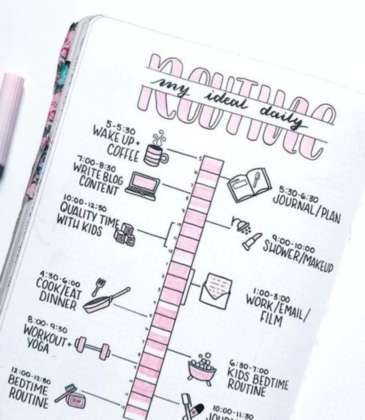 ROUTINE
my ideal daily
5-5:30
WAKE UP +
COFFEE
5:30-6:30
JOURNAL/PLAN
7:00-8:30
WRITE BLOG
CONTENT
9:00-10:00
SHOWER/MAKEUP
10:00-12:30
QUALITY TIME
WITH KIDS
1:00-3:00
WORK/EMAIL/
FILM
4:30-6:00
COOK/EAT
DINNER
6:30-7:00
KIDS BEDTIME
ROUTINE
8:00-9:30
WORKOUT+
YOGA
10:00-11:30
JOURNAL
BEDTIME
ROUTINE